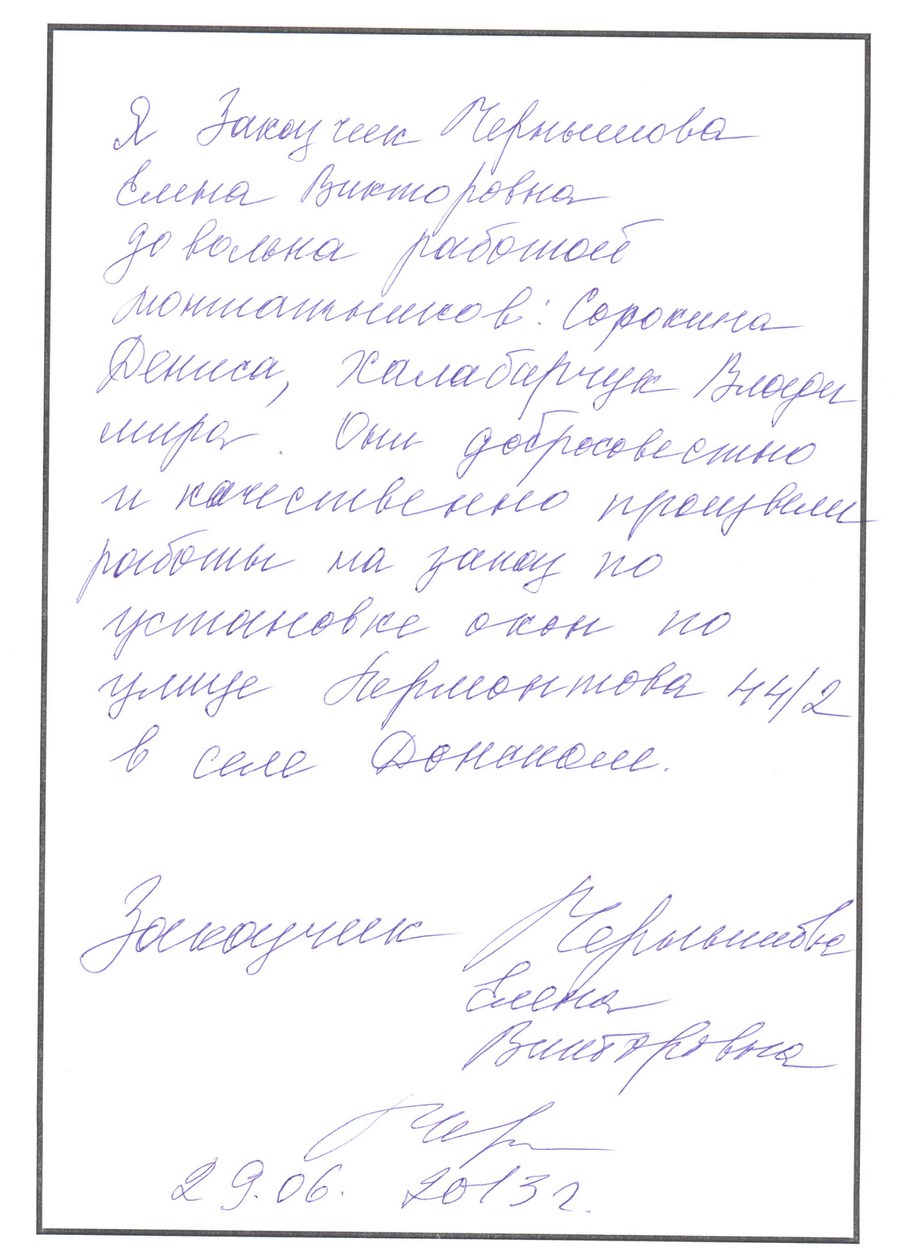 Я Заказчик Чернышова
Елена Викторовна
довольна работой
монтажников: Сорокина
Дениса, Халабарчук Влади
мира. Они добросовестно
и качественно произвели
работы на заказ по
установке окон по
улице Лермонтова 44/2
в селе Донском.
Заказчик Чернышова
Елена
Викторовна
Чер
29.06. 2013 г.